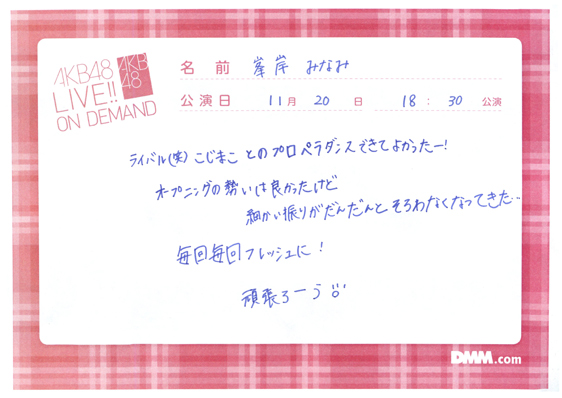 AKB48
LIVE!!
ON DEMAND
AKB
48
名 前 峯岸 みなみ
公演日 11月 20 日 18 : 30 公演
ライバル(笑)こじまこ とのプロペラダンスできてよかったー!
オープニングの勢いは良かったけど
細かい振りがだんだんと そろわなくなってきた…
毎回毎回フレッシュに!
頑張ろーう
DMM.com